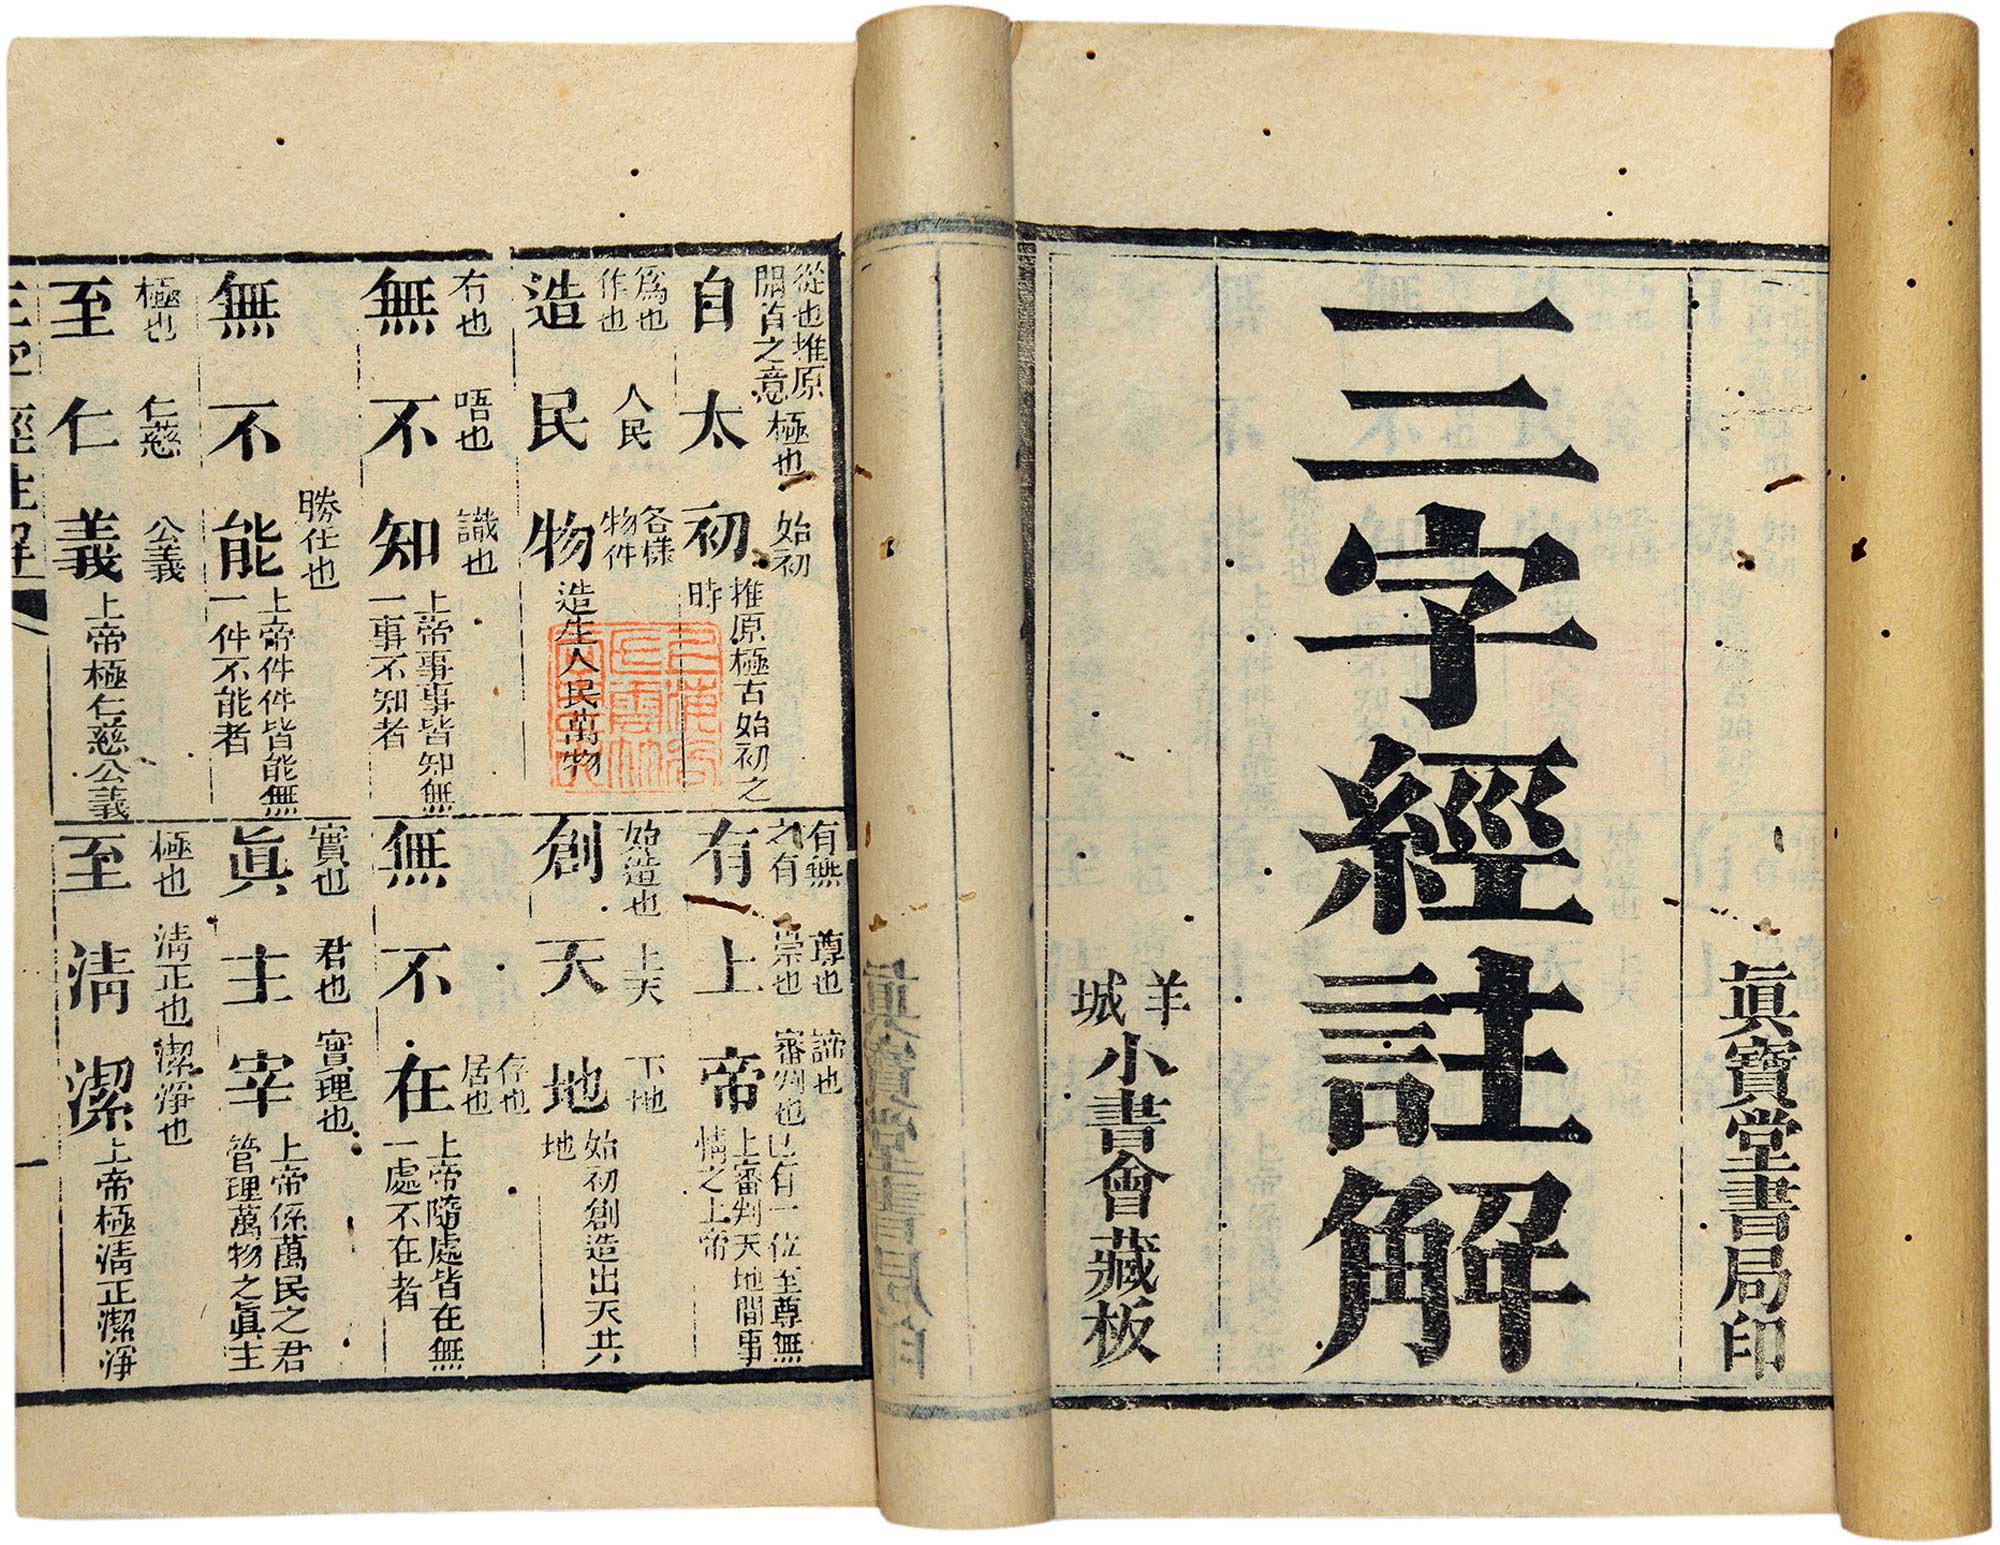 眞寶堂書局印
三字經註解
羊城
小書會藏板
從也推原開首之意
極也
始初
自太初
推原極古始初之時
有無之有
尊也崇也
諦也審判也
有上帝
已有一位至尊無上審判天地間事情之上帝
爲也作也
人民
各樣物件
造民物
造生人民萬物
始造也
上天
下地
創天地
始初創造出天共地
冇也
唔也
識也
無不知
上帝事事皆知無一事不知者
無不在
存也居也
上帝隨處皆在無一處不在者
無不能
勝任也
上帝件件皆能無一件不能者
實也
君也
實理也
眞主宰
上帝係萬民之君管理萬物之眞主
極也
仁慈
公義
至仁義
上帝極仁慈公義
極也
淸正也
潔淨也
至淸潔
上帝極淸正潔淨
三字經註解
一